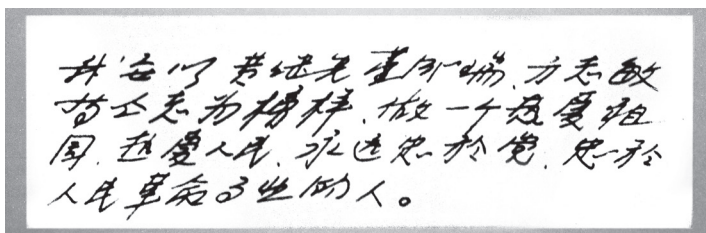 我要以黄继光董存瑞、方志敏
等同志为榜样、做一个热爱祖
国、热爱人民、永远忠於党、忠於
人民革命事业的人。